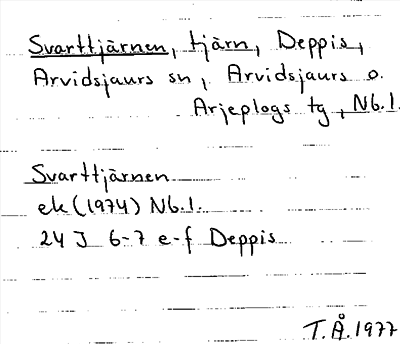 Svarttjärnen, tjärn, Deppis,
Arvidsjaurs sn, Arvidsjaurs o.
Arjeplogs tg, Nb.l.
Svarttjärnen
ek (1974) Nb.l.
24 J 6-7 e-f Deppis
T.Å. 1977